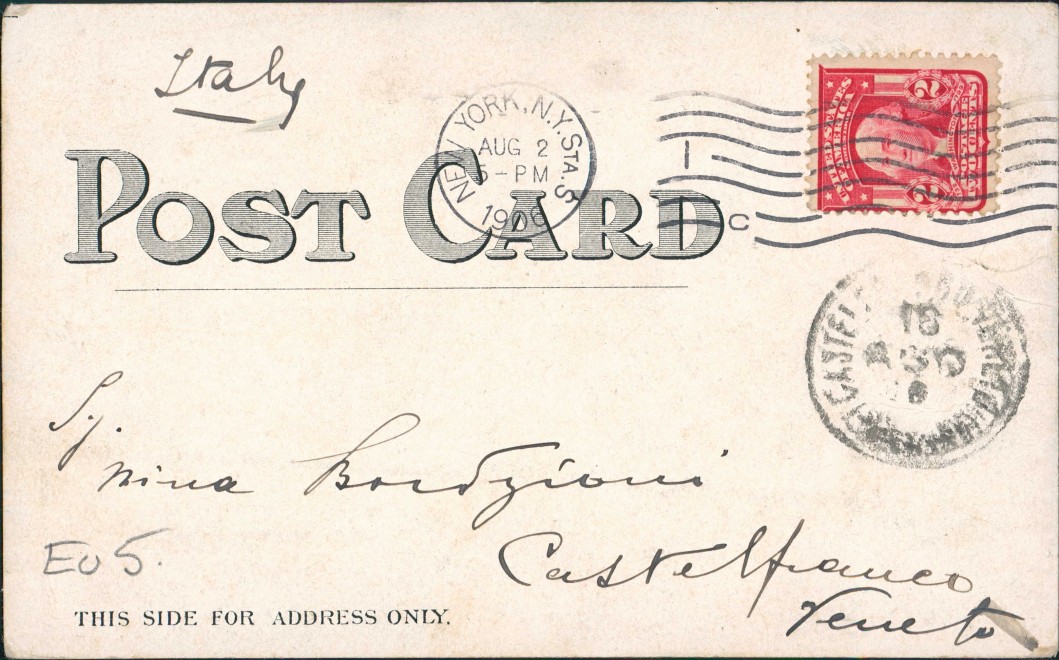 Italy
NEW YORK, N.Y. STA. S
AUG 2
5-PM
1906
1
C
UNITED STATES
OF AMERICA
2 2
POST CARD
CASTEL
15
AGO
Sig.
Nina Bordzioni
Castelfranco
Veneto
EU5.
THIS SIDE FOR ADDRESS ONLY.